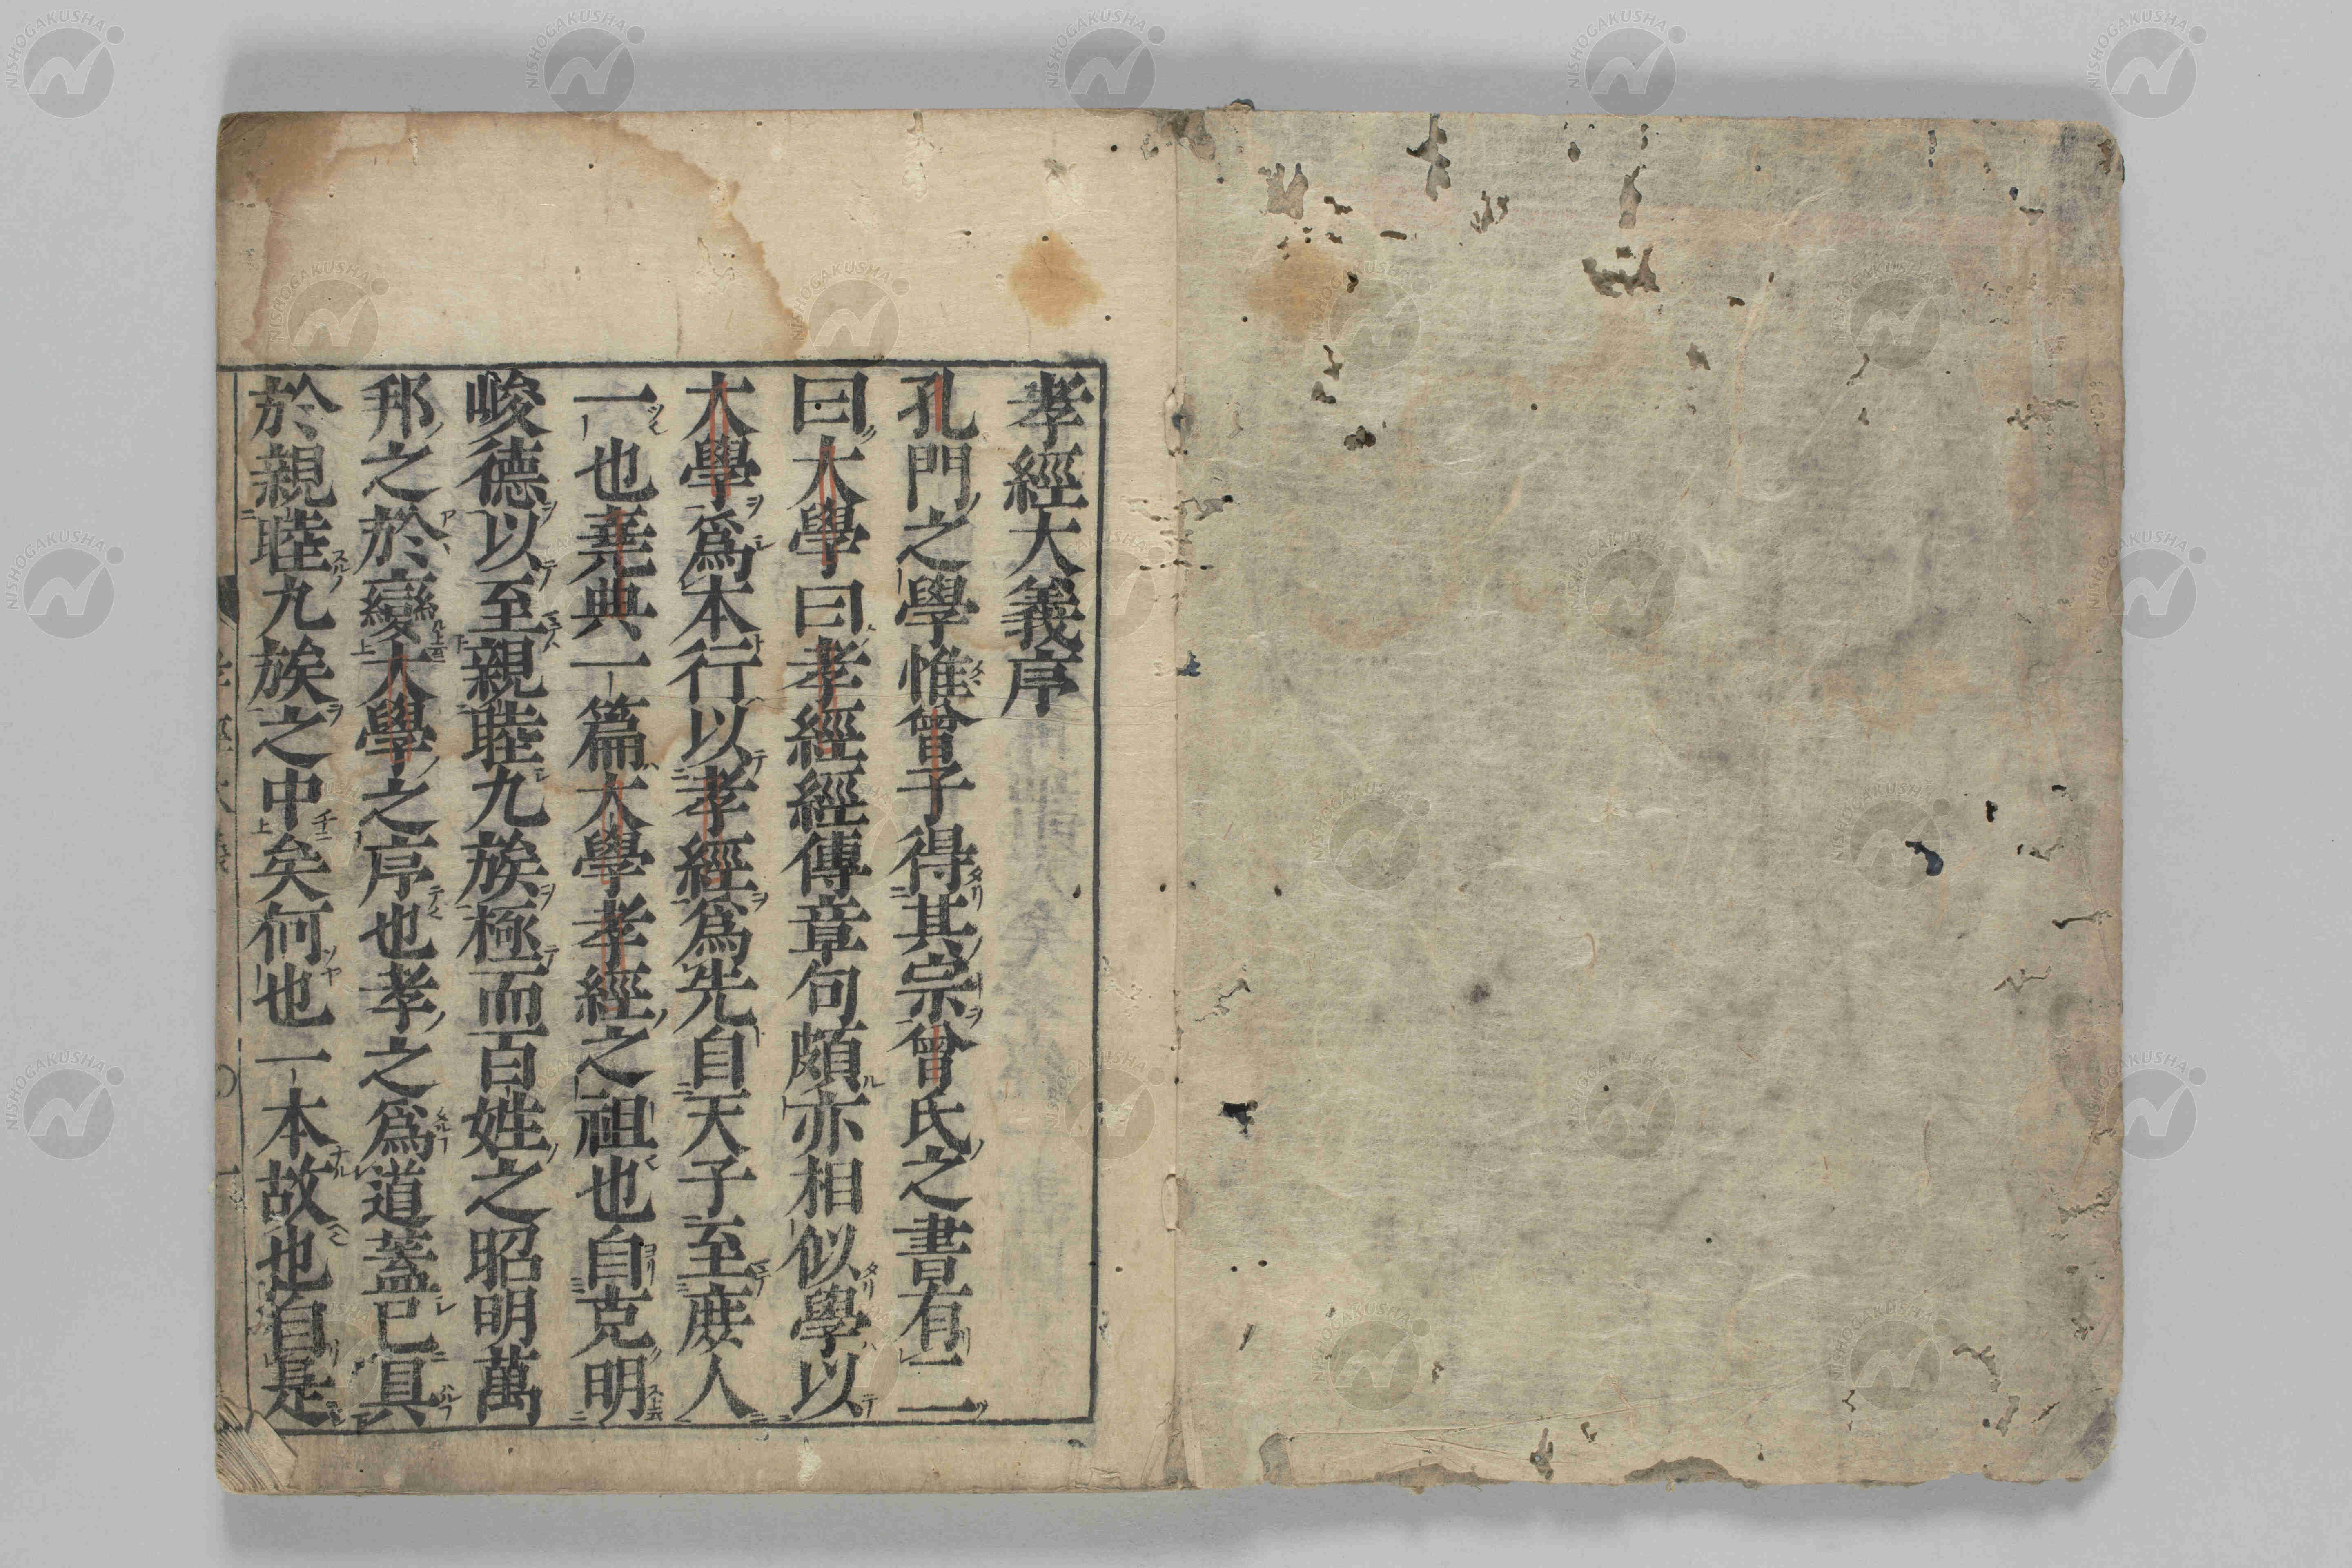 孝經大義序
孔門之學惟曾子得其宗曾氏之書有二
曰大學曰孝經經傳章句頗亦相似學以
大學爲本行以孝經爲先自天子至庻人
一也堯典一篇大學孝經之祖也自克明
峻德以至親睦九族極而百姓之昭明萬
邦之於變大學之序也孝之爲道蓋已具
於親睦九族之中矣何也一本故也自是